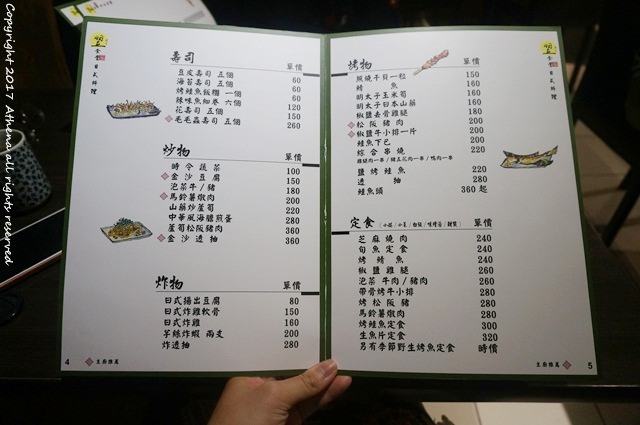 Copyright 2017 Athena all rights reserved
壽司 單價
豆皮壽司 五個 60
海苔壽司 五個 60
烤鮭魚飯糰 一個 60
辣味魚細卷 六個 60
花壽司 五個 120
毛毛蟲壽司 五個 150
260
炒物 單價
時令蔬菜 100
金沙豆腐 150
泡菜牛/豬 180
馬鈴薯燉肉 200
山藥炒蘆筍 220
中華風海膽煎蛋 280
蘆筍松阪豬肉 360
金沙透抽 360
炸物 單價
日式揚出豆腐 80
日式炸雞軟骨 150
日式炸雞 160
芋絲炸蝦 兩支 200
炸透抽 280
4
主廚推薦
日式料理
烤物 單價
照燒干貝一粒 150
烤魚 160
明太子玉米筍 160
明太子日本山藥 180
椒鹽去骨雞腿 180
松阪豬肉 200
椒鹽牛小排一片 200
鮭魚下巴 200
綜合串燒 220
雞腿肉一串/豬五花肉一串/鴨肉一串
鹽烤鮭魚 220
透抽 280
鮭魚頭 360起
定食 單價
芝麻燒肉 240
旬魚定食 240
烤鯖魚 240
椒鹽雞腿 260
泡菜 牛肉/豬肉 260
帶骨烤牛小排 280
烤松阪豬 280
馬鈴薯燉肉 280
烤鮭魚定食 300
生魚片定食 320
另有季節野生烤魚定食 時價
主廚推薦
5
日式料理